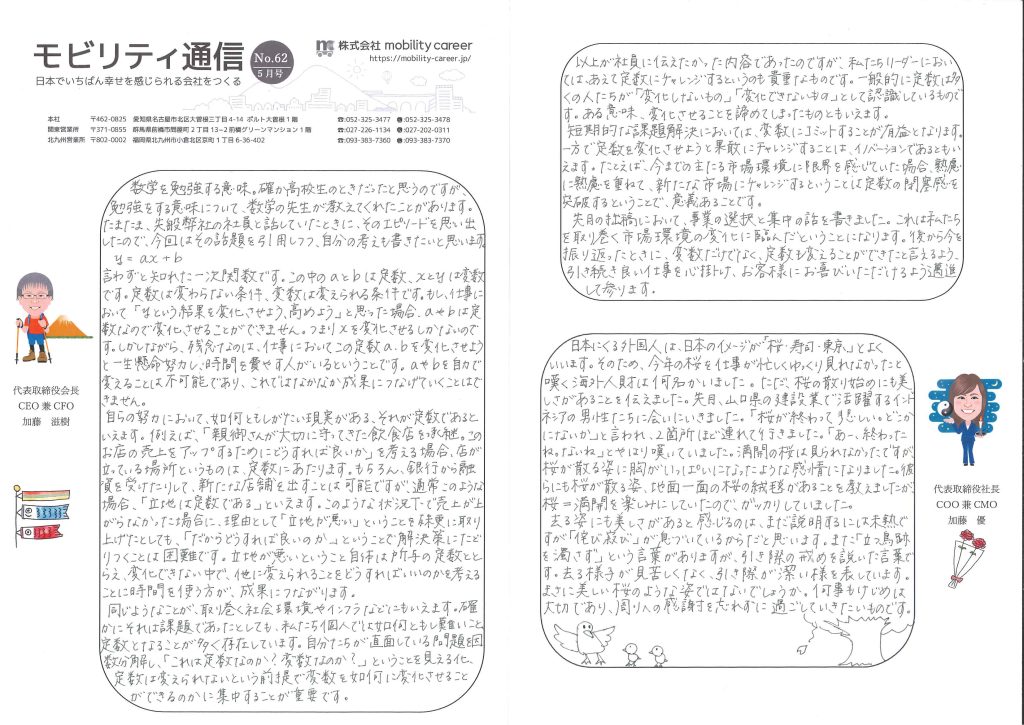 モビリティ通信
No.62
5月号
日本でいちばん幸せを感じられる会社をつくる
mc 株式会社 mobility career
https://mobility-career.jp/
本社 〒462-0825 愛知県名古屋市北区大曽根三丁目4-14 ポルト大曽根1階 ☎:052-325-3477 :052-325-3478
関東営業所 〒371-0855 群馬県前橋市問屋町2丁目13-2前橋グリーンマンション1階 ☎:027-226-1134 :027-202-0311
北九州営業所 〒802-0002 福岡県北九州市小倉北区京町1丁目6-36-402 ☎:093-383-7360 :093-383-7370
数学を勉強する意味。確か高校生のときだったと思うのですが、
勉強をする意味について、数学の先生が教えてくれたことがあります。
たまたま、先般弊社の社員と話していたときに、そのエピソードを思い出
したので、今回はその話題を引用しつつ、自分の考えも書きたいと思います。
y = ax + b
言わずと知れた一次関数です。この中のaとbは定数、xとyは変数
です。定数は変わらない条件、変数は変えられる条件です。もし、仕事に
おいて「yという結果を変化させよう、高めよう」と思った場合、aやbは定
数なので変化させることができません。つまりxを変化させるしかないので
す。しかしながら、残念なのは、仕事においてこの定数a.bを変化させよう
と一生懸命努力し、時間を費やす人がいるということです。aやbを自力で
変えることは不可能であり、これではなかなか成果につなげていくことはで
きません。
自らの努力において、如何ともしがたい現実がある、それが定数であると
いえます。例えば、「親御さんが大切に守ってきた飲食店を承継。この
お店の売上をアップするためにどうすれば良いか」を考える場合、店が
立っている場所というものは、定数にあたります。もちろん、銀行から融
資を受けたりして、新たな店舗を出すことは可能ですが、通常このような
場合、「立地は定数である」といえます。このような状況下で売上が上
がらなかった場合に、理由として「立地が悪い」ということを殊更に取り
上げたとしても、「だからどうすれば良いのか」ということで解決策にたど
りつくことは困難です。立地が悪いということ自体は所与の定数とと
らえ、変化できない中で、他に変えられることをどうすればいいのかを考える
ことに時間を使う方が、成果につながります。
同じようなことが、取り巻く社会環境やインフラなどにもいえます。確
かにそれは課題であったとしても、私たち個人では如何ともし難いこと
定数となることが多く存在しています。自分たちが直面している問題を因
数分解し、「これは定数なのか?変数なのか?」ということを見える化、
定数は変えられないという前提で変数を如何に変化させること
ができるのかに集中することが重要です。
代表取締役会長
CEO 兼 CFO
加藤 滋樹
以上が社員に伝えたかった内容であったのですが、私たちリーダーにおい
ては、あえて定数にチャレンジするというのも貴重なものです。一般的に定数は多
くの人たちが「変化しないもの」「変化できないもの」として認識しているもので
す。ある意味、変化させることを諦めてしまったものともいえます。
短期的な課題解決においては、変数にコミットすることが有益となります。
一方で定数を変化させようと果敢にチャレンジすることは、イノベーションであるともい
えます。たとえば、今までの主たる市場環境に限界を感じていた場合、熟慮
に熟慮を重ねて、新たな市場にチャレンジするということは定数の閉塞感を
突破するということで、意義あることです。
先月の拙稿において、事業の選択と集中の話を書きました。これは私たち
を取り巻く市場環境の変化に臨んだということになります。後から今を
振り返ったときに、変数だけでなく、定数も変えることができたと言えるよう、
引き続き良い仕事を心掛け、お客様にお喜びいただけるよう邁進
して参ります。
日本にくる外国人は、日本のイメージが「桜・寿司・東京」とよく
いいます。そのため、今年の桜を仕事が忙しくゆっくり見れなかったと
嘆く海外人財は何名かいました。ただ、桜の散り始めにも美
しさがあることを伝えました。先月、山口県の建設業で活躍するインド
ネシアの男性たちに会いにいきました。「桜が終わって悲しい。どこか
にないか」と言われ、2箇所ほど連れて行きました。「あー、終わった
ね。ないね」とやはり嘆いていました。満開の桜は見られなかったですが
桜が散る姿に胸がいっぱいになったような感情になりました。彼
らにも桜が散る姿、地面一面の桜の絨毯があることを教えましたが、
桜=満開を楽しみにしていたので、ガッカリしていました。
去る姿にも美しさがあると感じるのは、まだ説明するには未熟で
すが「侘び寂び」が見づいているからだと思います。また「立つ鳥跡
を濁さず」という言葉がありますが、引き際の戒めを説いた言葉で
す。去る様子が見苦しくなく、引き際が潔い様を表しています。
まさに美しい桜のような姿ではないでしょうか。何事もけじめは
大切であり、周り人への感謝を忘れずに過ごしていきたいものです。
代表取締役社長
COO 兼 CMO
加藤 優